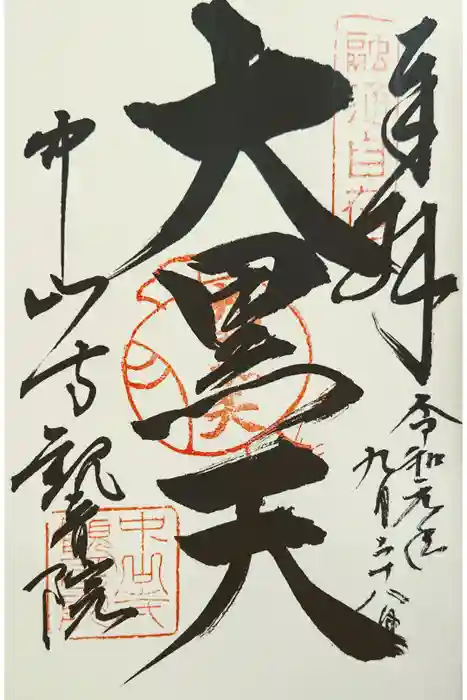 融通自在
奉拝
令和元年
九月二十八日
大黒天
中山寺観音院
中山寺